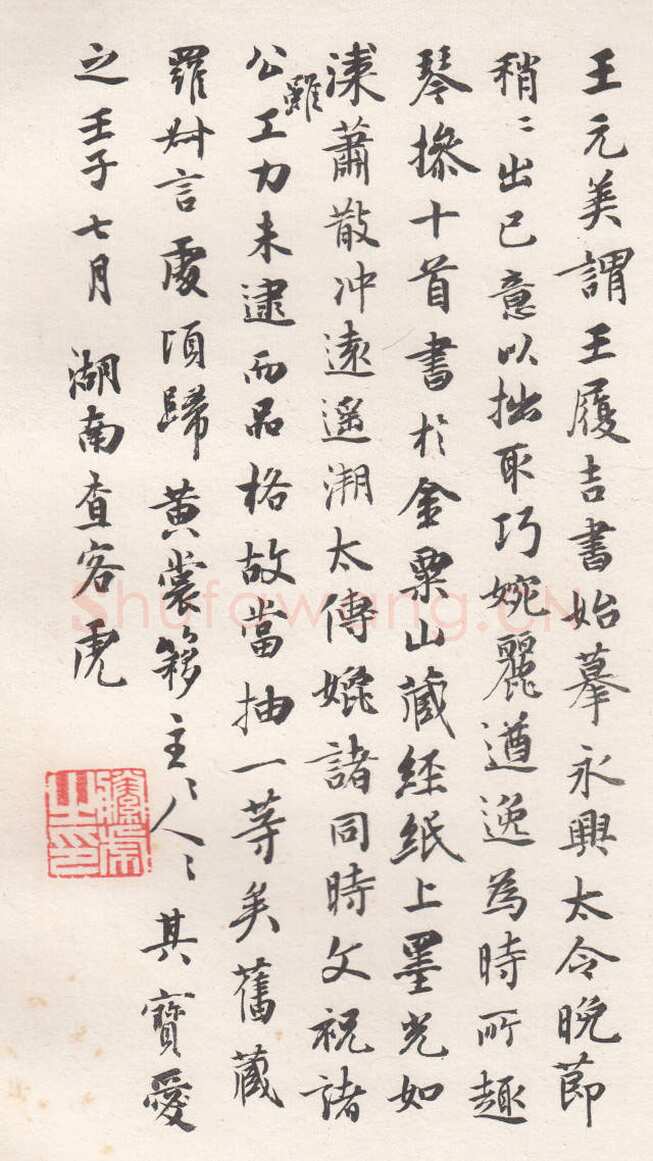 王元美謂王履吉書始摹永興太令晚節
稍〻出已意以拙取巧婉麗遒逸為時所趣
琴操十首書於金粟山藏經紙上墨光如
漆蕭散冲遠遥溯太傅媲諸同時文祝諸
公雖工力未逮而品格故當抽一等矣舊藏
羅叔言處頃歸黄裳簃主〻人〻其寶愛
之壬子七月 湖南查客虎
Shufawang.CN
之印